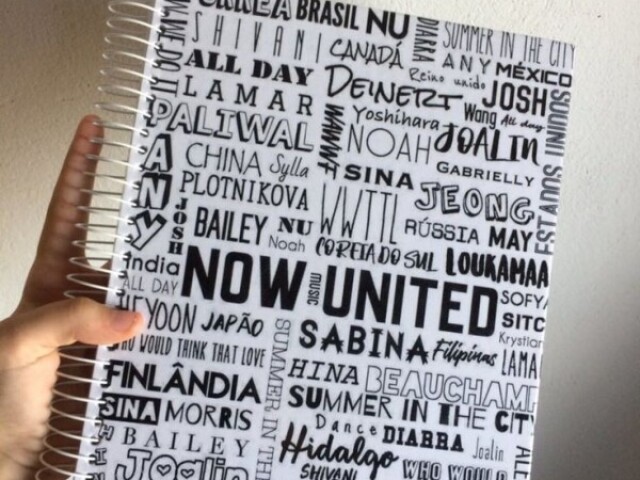 BRASIL NU
SHIVANI
CANADÁ
DIARRA
SUMMER IN THE CITY
ANY MÉXICO
ALL DAY
Reino unido
DEINERT
JOSH
LAMAR
Wang All day
PALIWAL
Yoshihara
WWWF
NOAH
JOALIN
ANY
CHINA Sylla
SINA
GABRIELLY
PLOTNIKOVA
WWTTL
JEONG
JOSH
BAILEY NU
Noah
RÚSSIA MAY
COREIA DO SUL
LOUKAMAA
India
ALL DAY
NOW UNITED
MUSIC
SOFYA
HEYOON JAPÃO
SABINA Filipinas
SITC
Krystian
WHO WOULD THINK THAT LOVE
SUMMER IN THE
LAMA
HINA BEAUCHAMP
FINLÂNDIA
SUMMER IN THE CITY
SINA MORRIS
Dance DIARRA Joalin
BAILEY
Hidalgo
Joalin
SHIVANI
WHO WOULD